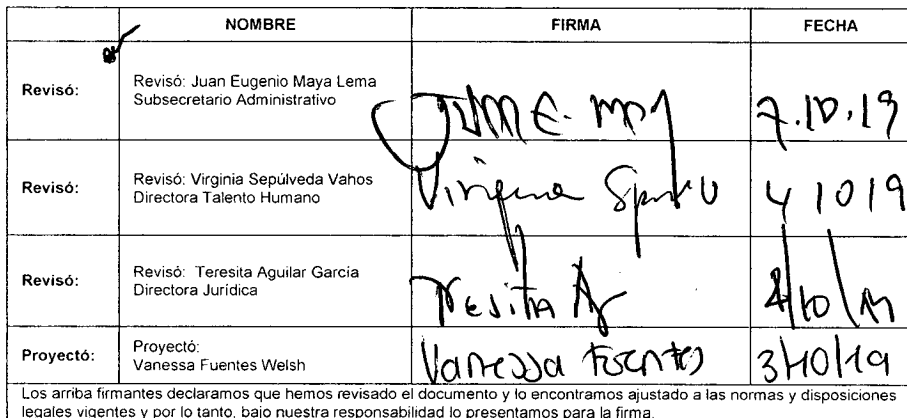 NOMBRE FIRMA FECHA
Revisó: Revisó: Juan Eugenio Maya Lema
Subsecretario Administrativo
7.10.19
Revisó: Revisó: Virginia Sepúlveda Vahos
Directora Talento Humano
Virginia
4 10 19
Revisó: Revisó: Teresita Aguilar García
Directora Jurídica
Proyectó: Proyectó:
Vanessa Fuentes Welsh
Vanessa Fuentes 3/10/19
Los arriba firmantes declaramos que hemos revisado el documento y lo encontramos ajustado a las normas y disposiciones
legales vigentes y por lo tanto, bajo nuestra responsabilidad lo presentamos para la firma.